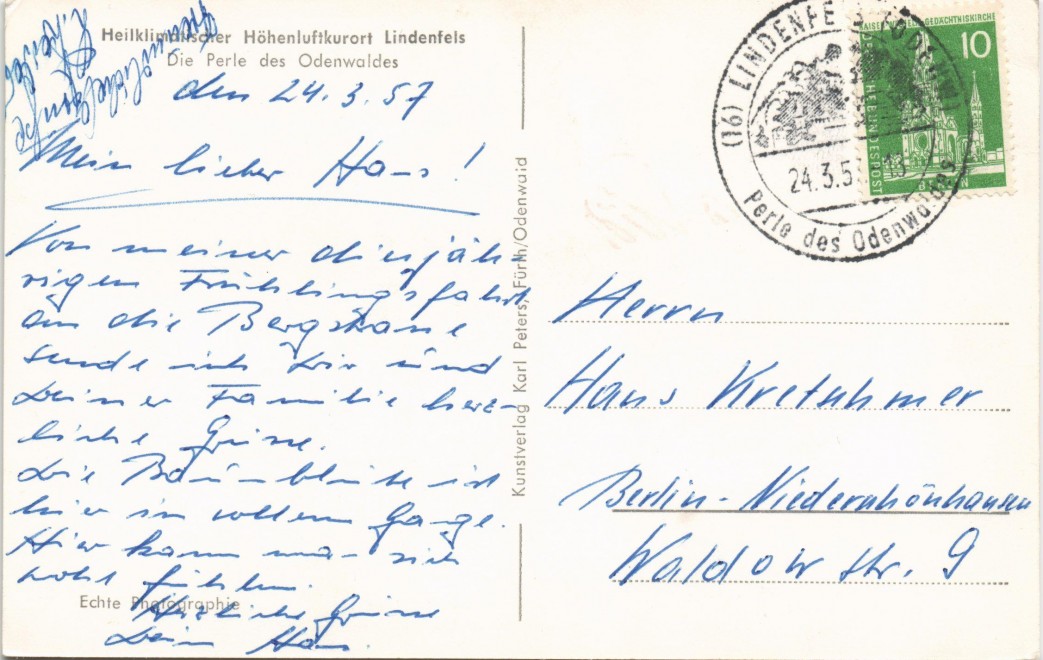 Heilklimatischer Höhenluftkurort Lindenfels
Die Perle des Odenwaldes
den 24.3.57
Mein lieber Hans!
Von meiner diesjäh-
rigen Frühlingsfahrt
an die Bergstrasse
sende ich Dir und
Deiner Familie herz-
liche Grüsse.
Die Baumblüte ist
hier in vollem Gange.
Hier kann man sich
wohl fühlen.
Herzliche Grüsse
Dein Hans.
Echte Photographie
Kunstverlag Karl Peters, Fürth/Odenwald
(16) LINDENFELS (ODENW)
24.3.5
Perle des Odenwaldes
KAISER GEDÄCHTNISKIRCHE
10
DEUTSCHE BUNDESPOST
BERLIN
Herrn
Hans Kretschmer
Berlin-Niederschönhausen
Waldow str. 9